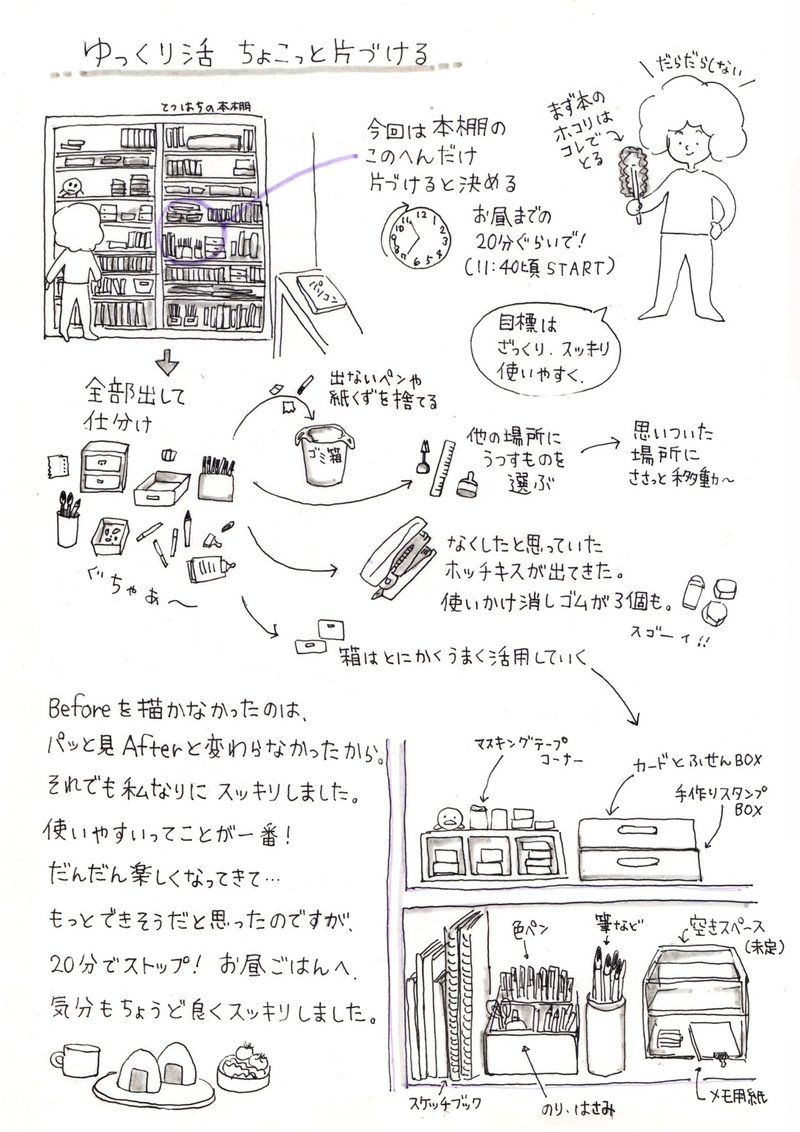 ゆっくり活 ちょこっと片づける
てつはちの本棚
今回は本棚の
このへんだけ
片づけると決める
11 12 1
10 2
9 3
8 4
7 6 5
お昼までの
20分ぐらいで!
(11:40頃START)
パソコン
だらだらしない
まず本の
ホコリは
コレで
とる
目標は
ざっくり、スッキリ
使いやすく。
全部出して
仕分け
出ないペンや
紙くずを捨てる
ゴミ箱
他の場所に
うつすものを
選ぶ
思いついた
場所に
ささっと移動〜
ぐちゃぁ〜
なくしたと思っていた
ホッチキスが出てきた。
使いかけ消しゴムが3個も。
スゴーイ!!
箱はとにかくうまく活用していく
Beforeを描かなかったのは、
パッと見Afterと変わらなかったから。
それでも私なりにスッキリしました。
使いやすいってことが一番!
だんだん楽しくなってきて…
もっとできそうだと思ったのですが、
20分でストップ! お昼ごはんへ。
気分もちょうど良くスッキリしました。
マスキングテープ
コーナー
カードとふせんBOX
手作りスタンプ
BOX
色ペン
筆など
空きスペース
(未定)
スケッチブック
のり、はさみ
メモ用紙